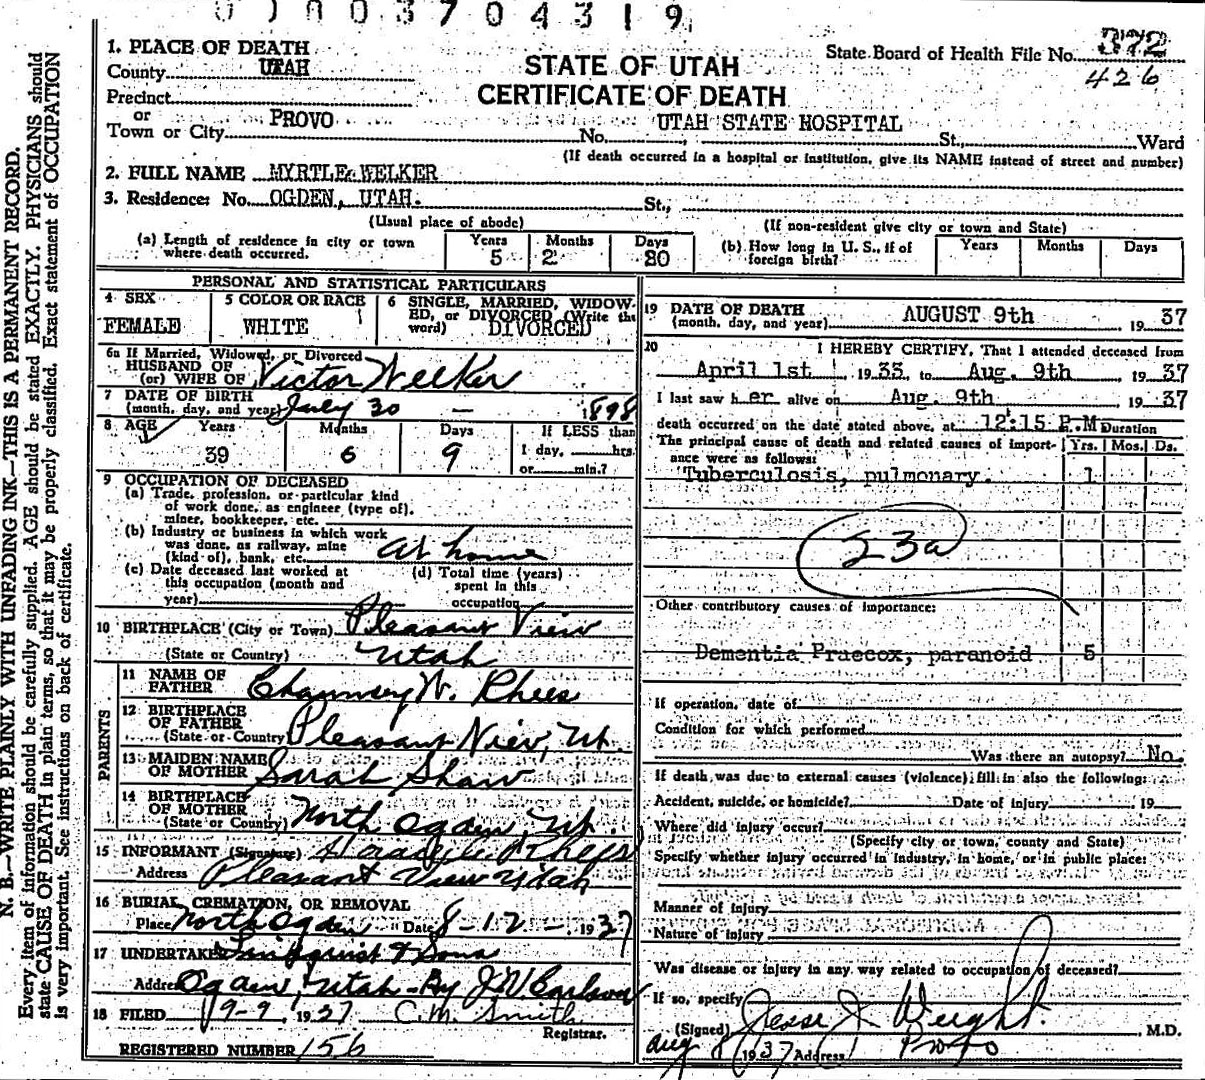 0 0 0 3 7 0 4 3 1 9
N. B.—WRITE PLAINLY WITH UNFADING INK—THIS IS A PERMANENT RECORD.
Every item of information should be carefully supplied. AGE should be stated EXACTLY. PHYSICIANS should
state CAUSE OF DEATH in plain terms, so that it may be properly classified. Exact statement of OCCUPATION
is very important. See instructions on back of certificate.
STATE OF UTAH
CERTIFICATE OF DEATH
State Board of Health File No.
426
1. PLACE OF DEATH
County UTAH
Precinct
or
Town or City PROVO No. UTAH STATE HOSPITAL St., Ward
(If death occurred in a hospital or institution, give its NAME instead of street and number)
2. FULL NAME MYRTLE WELKER
3. Residence: No. OGDEN, UTAH. St.,
(Usual place of abode) (If non-resident give city or town and State)
(a) Length of residence in city or town where death occurred. Years 5 Months 2 Days 20
(b) How long in U. S., if of foreign birth? Years Months Days
PERSONAL AND STATISTICAL PARTICULARS
4 SEX FEMALE
5 COLOR OR RACE WHITE
6 SINGLE, MARRIED, WIDOWED, OR DIVORCED (Write the word) DIVORCED
6a If Married, Widowed, or Divorced
HUSBAND OF
(or) WIFE OF Victor Welker
7 DATE OF BIRTH
(month, day, and year) July 30 - 1898
8 AGE Years 39 Months 6 Days 9 If LESS than
1 day, hrs.
or min.?
9 OCCUPATION OF DECEASED
(a) Trade, profession, or particular kind
of work done, as engineer (type of),
miner, bookkeeper, etc.
(b) Industry or business in which work
was done, as railway, mine
(kind of), bank, etc. At home
(c) Date deceased last worked at
this occupation (month and
year)
(d) Total time (years)
spent in this
occupation
10 BIRTHPLACE (City or Town) Pleasant View
(State or Country) Utah
PARENTS
11 NAME OF
FATHER Chauncey W. Rhees
12 BIRTHPLACE
OF FATHER
(State or Country) Pleasant View, Ut.
13 MAIDEN NAME
OF MOTHER Sarah Shaw
14 BIRTHPLACE
OF MOTHER
(State or Country) North Ogden, Ut.
15 INFORMANT (Signature) Rhees
Address Pleasant View Utah
16 BURIAL, CREMATION, OR REMOVAL
Place North Ogden Date 8-12-1937
17 UNDERTAKER Lindquist & Sons
Address Ogden, Utah - By J.W. Carlson
18 FILED 1937 C.M. Smith
Registrar.
REGISTERED NUMBER 156
19 DATE OF DEATH
(month, day, and year) AUGUST 9th 19 37
20 I HEREBY CERTIFY, That I attended deceased from
April 1st 1935, to Aug. 9th 19 37
I last saw her alive on Aug. 9th 19 37
death occurred on the date stated above, at 12:15 P.M Duration
The principal cause of death and related causes of importance were as follows: Yrs. Mos. Ds.
Tuberculosis, pulmonary. 1
23a
Other contributory causes of importance:
Dementia Praecox, paranoid 5
If operation, date of
Condition for which performed
Was there an autopsy? No.
If death was due to external causes (violence) fill in also the following:
Accident, suicide, or homicide? Date of injury 19
Where did injury occur?
(Specify city or town, county and State)
Specify whether injury occurred in industry, in home, or in public place:
Manner of injury
Nature of injury
Was disease or injury in any way related to occupation of deceased?
If so, specify
(Signed) Jesse J Weight. M.D.
Aug 1937 Address Provo